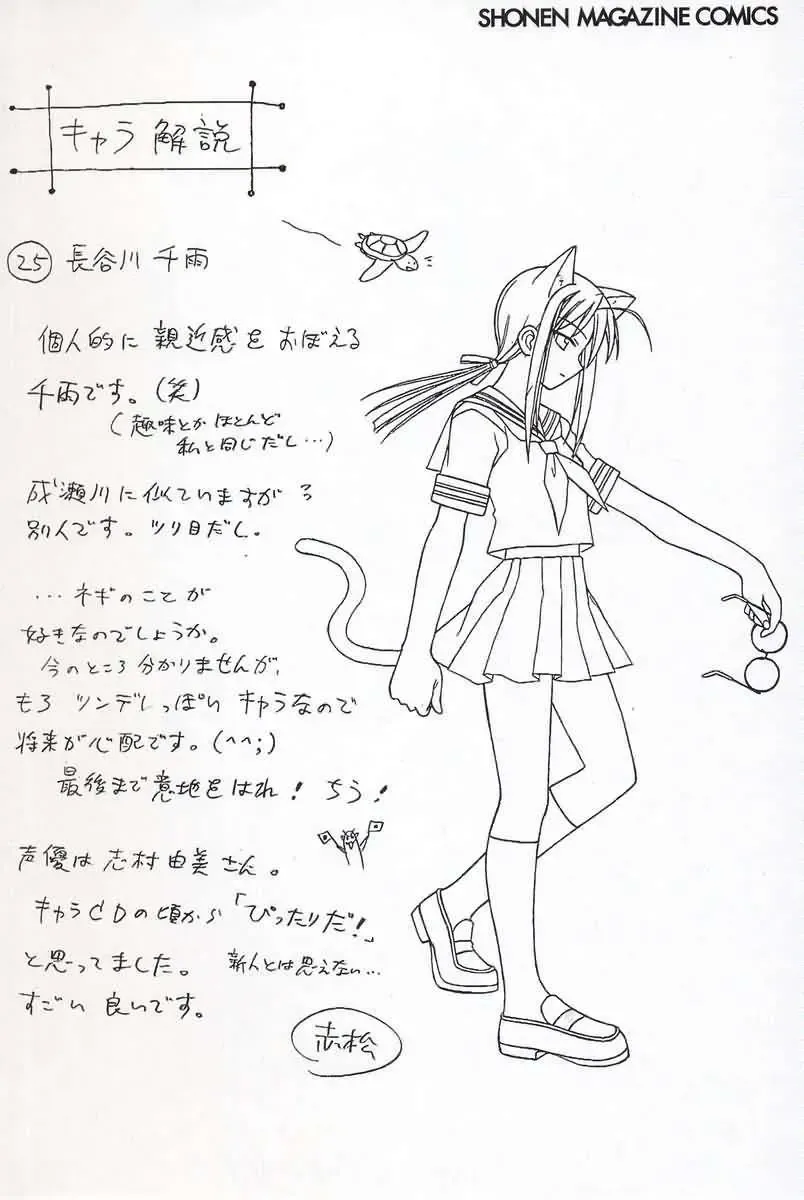 SHONEN MAGAZINE COMICS
キャラ 解説
25 長谷川 千雨
個人的に 親近感を おぼえる
千雨です。(笑)
(趣味とか ほとんど
私と同じだし…)
成瀬川に似ていますがろ
別人です。ツリ目だし。
…ネギのことが
好きなのでしょうか。
今のところ分かりませんが、
もろ ツンデレっぽい キャラなので
将来が心配です。(^^;)
最後まで意地をはれ! ちう!
声優は 志村由美さん。
キャラCDの頃から「ぴったりだ!」
と思ってました。 新人とは思えない…
すごい 良いです。
赤松